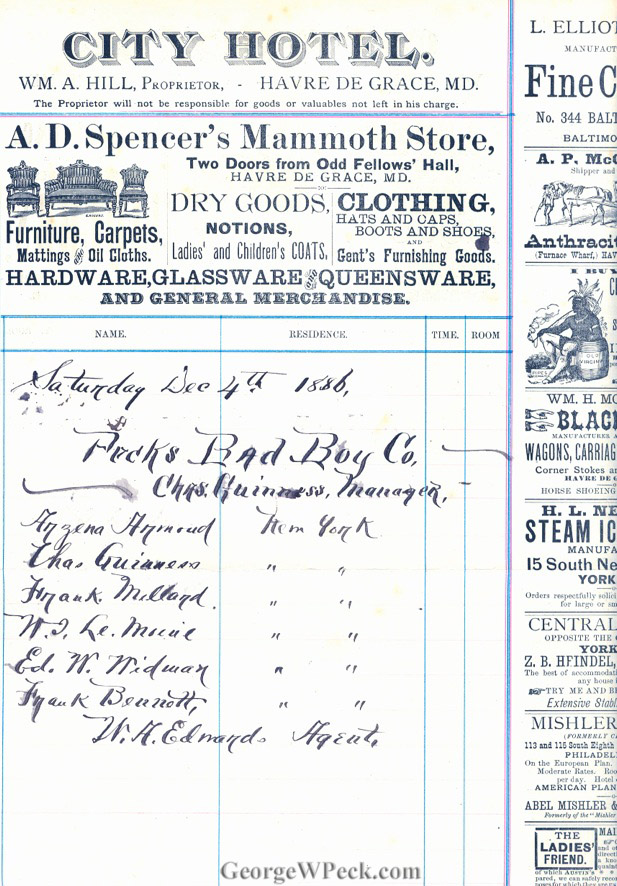 CITY HOTEL.
WM. A. HILL, PROPRIETOR, - HAVRE DE GRACE, MD.
The Proprietor will not be responsible for goods or valuables not left in his charge.
A. D. Spencer's Mammoth Store,
Two Doors from Odd Fellows' Hall,
HAVRE DE GRACE, MD.
Furniture, Carpets,
Mattings and Oil Cloths.
DRY GOODS,
NOTIONS,
Ladies' and Children's COATS,
CLOTHING,
HATS AND CAPS,
BOOTS AND SHOES,
AND
Gent's Furnishing Goods.
HARDWARE, GLASSWARE and QUEENSWARE,
AND GENERAL MERCHANDISE.
NAME. RESIDENCE. TIME. ROOM
Saturday Dec 4th 1886,
Pecks Bad Boy Co,
Chas. Guinness, Manager,
Armond New York
Chas Guinness " "
Frank Millard " "
W. J. Le Moine " "
Ed. W. Widman " "
Frank Bennett, " "
W. H. Edwards Agent,
L. ELLIOT
MANUFACT
Fine C
No. 344 BALT
BALTIMO
A. P. McC
Shipper and
Anthracit
(Furnace Wharf,) HAV
I BUY
OLD
VIRGINIA
WM. H. MC
BLAC
MANUFACTURER A
WAGONS, CARRIAG
Corner Stokes a
HAVRE DE G
HORSE SHOEING
H. L. NE
STEAM IC
MANUFA
15 South Ne
YORK
Orders respectfully solici
for large or sm
CENTRAL
OPPOSITE THE
YORK
Z. B. HFINDEL,
The best of accommodati
any house
TRY ME AND BE
Extensive Stabl
MISHLER
(FORMERLY C
113 and 115 South Eighth
PHILADEL
On the European Plan.
Moderate Rates. Roo
per day. Hotel
AMERICAN PLAN
ABEL MISHLER &
Formerly of the "Mishler
THE
LADIES'
FRIEND.
MAI
and ot
directi
a kno
of which AUSTIN'S
pared, we can safely recom
GeorgeWPeck.com